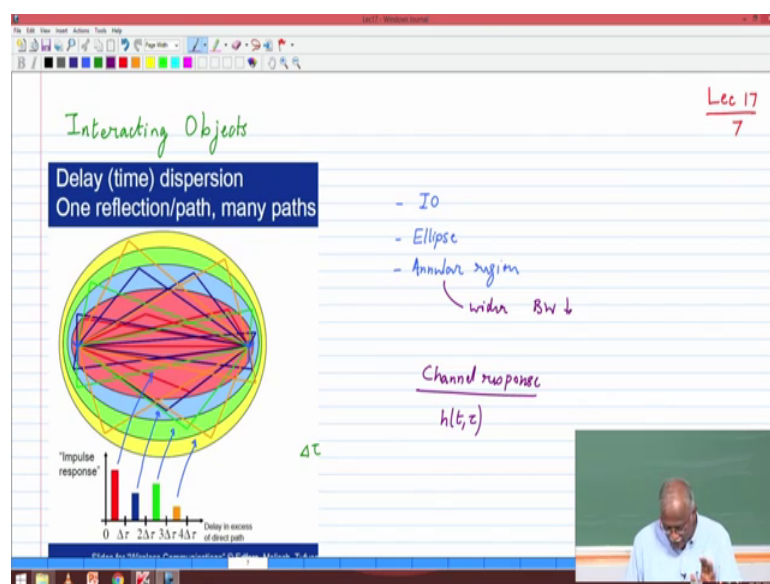 Lec17 - Windows Journal
File Edit View Insert Actions Tools Help
Page Width
B I
Lec 17
7
Interacting Objects
Delay (time) dispersion
One reflection/path, many paths
- IO
- Ellipse
- Annular region
wider BW ↓
Channel response
h(t,τ)
Δτ
"Impulse
response"
0 Δτ 2Δτ 3Δτ 4Δτ
Delay in excess
of direct path
Slides for "Wireless Communications" © Edfors, Molisch, Tufvesson
7